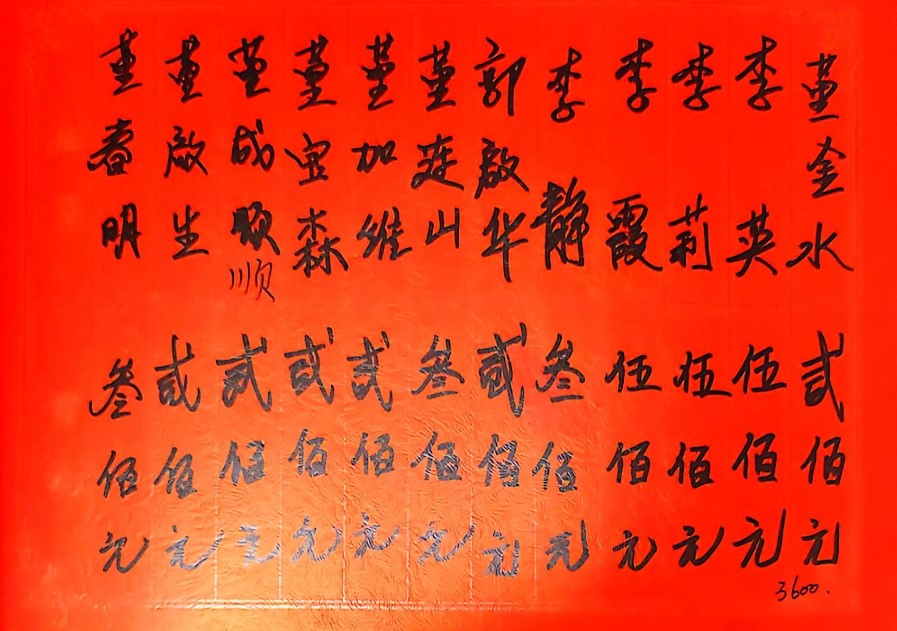 董金水 贰佰元
李英 伍佰元
李莉 伍佰元
李霞 伍佰元
李静 叁佰元
郭啟华 贰佰元
董连山 叁佰元
董加维 贰佰元
董宜森 贰佰元
董成顺 顺 贰佰元
董啟生 贰佰元
董春明 叁佰元
3600.